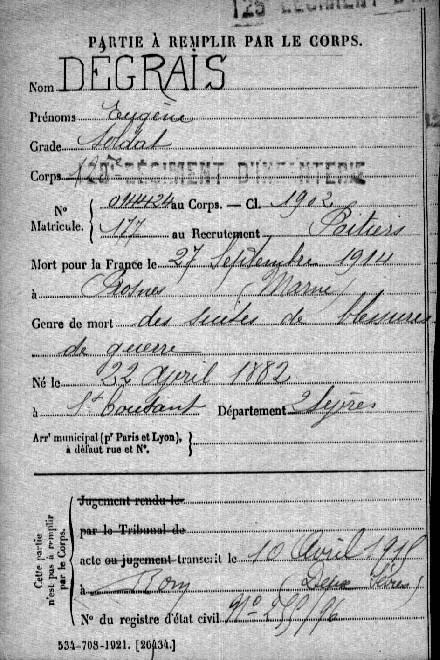 125 REGIMENT D'
PARTIE À REMPLIR PAR LE CORPS.
Nom DÉGRAIS
Prénoms Eugène
Grade Soldat
Corps 125e RÉGIMENT D'INFANTERIE
No Matricule. 014424 au Corps. — Cl. 1902
177 au Recrutement Poitiers
Mort pour la France le 27 Septembre 1914
à Prosnes (Marne)
Genre de mort des suites de blessures
de guerre
Né le 22 avril 1882
à St Coutant Département 2 Sèvres
Arrt municipal (pr Paris et Lyon),
à défaut rue et No.
Cette partie n'est pas à remplir par le Corps.
Jugement rendu le
par le Tribunal de
acte ou jugement transcrit le 10 Avril 1915
à Rom (Deux Sèvres)
No du registre d'état civil
534-708-1921. [26434.]